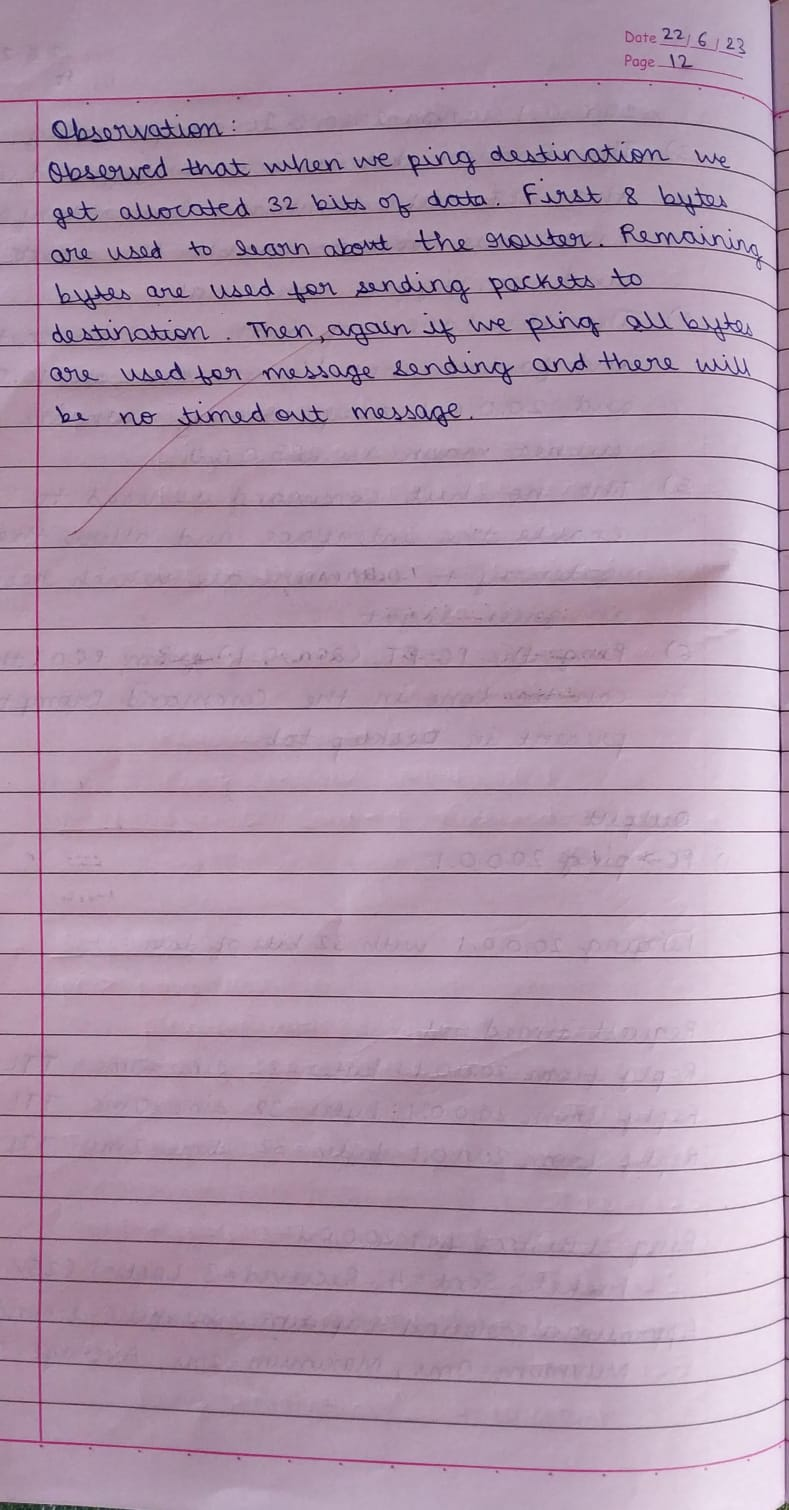 Date 22/6/23
Page 12
Observation:
Observed that when we ping destination we
get allocated 32 bits of data. First 8 bytes
are used to learn about the router. Remaining
bytes are used for sending packets to
destination. Then, again if we ping all bytes
are used for message sending and there will
be no timed out message.